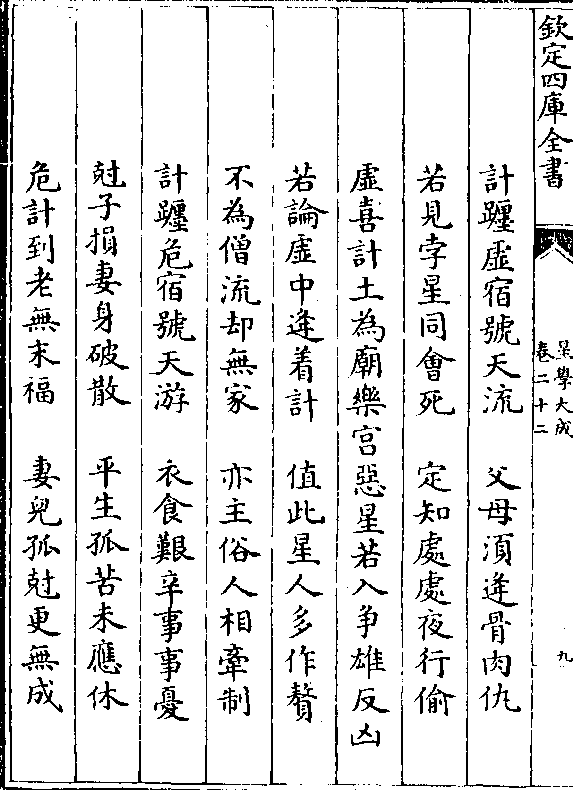 欽定四庫全書
星學大成
卷二十二
九
計躔虛宿號天流　父母須逢骨肉仇
若見孛星同會死　定知處處夜行偷
虛喜計土為廟樂宮惡星若入爭雄反凶
若論虛中逢着計　值此星人多作贅
不為僧流却無家　亦主俗人相牽制
計躔危宿號天游　衣食艱辛事事憂
尅子損妻身破散　平生孤苦未應休
危計到老無末福　妻兒孤尅更無成